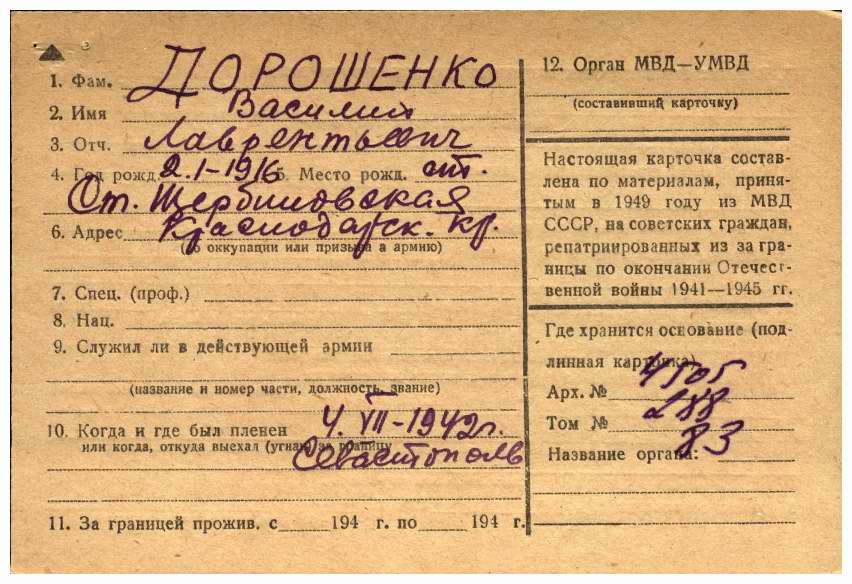 1. Фам. ДОРОШЕНКО
2. Имя Василий
3. Отч. Лаврентьевич
4. Год рожд. 2.I-1916 5. Место рожд. ст.
Ст. Щербиновская
6. Адрес Краснодарск. кр.
(до оккупации или призыва в армию)
7. Спец. (проф.)
8. Нац.
9. Служил ли в действующей армии
(название и номер части, должность, звание)
10. Когда и где был пленен 4. VII-1942г.
или когда, откуда выехал (угнан) за границу
Севастополь
11. За границей прожив. с 194 г. по 194 г.
12. Орган МВД—УМВД
(составивший карточку)
Настоящая карточка состав-
лена по материалам, приня-
тым в 1949 году из МВД
СССР, на советских граждан,
репатриированных из за гра-
ницы по окончании Отечест-
венной войны 1941—1945 гг.
Где хранится основание (под-
линная карточка)
Арх. № 4505
Том № 288
Название органа: 83